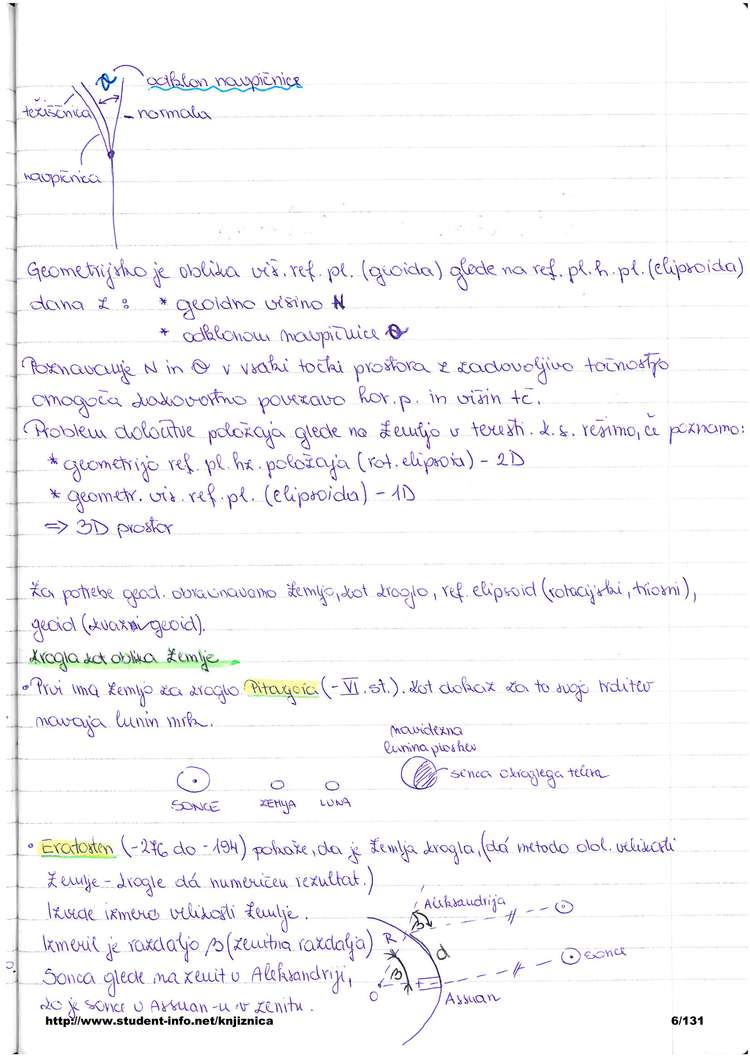 ϑ odklon navpičnice
težiščnica
normala
navpičnica
Geometrijsko je oblika viš. ref. pl. (geoida) glede na ref. pl. h. pl. (elipsoida)
dana z : * geoidno višino N
* odklonom navpičnice ϑ
Poznavanje N in ϑ v vsaki točki prostora z zadovoljivo točnostjo
omogoča kakovostno povezavo hor. p. in višin tč.
Problem določitve položaja glede na Zemljo v terestr. k. s. rešimo, če poznamo:
* geometrijo ref. pl. hz. položaja (rot. elipsoid) - 2D
* geometr. viš. ref. pl. (elipsoida) - 1D
=> 3D prostor
Za potrebe geod. obravnavamo Zemljo, kot kroglo, ref. elipsoid (rotacijski, triosni),
geoid (kvazi-geoid).
Krogla kot oblika Zemlje
• Prvi ima Zemljo za kroglo Pitagora (-VI. st.). Kot dokaz za to svojo trditev
navaja lunin mrk.
navidezna
lunina ploskev
senca okroglega telesa
SONCE ZEMLJA LUNA
• Eratosten (-276 do -194) pokaže, da je Zemlja krogla, (dá metodo dol. velikosti
Zemlje - krogle dá numeričen rezultat.)
Izvede izmero velikosti Zemlje.
Izmeril je razdaljo β (zenitna razdalja)
Sonca glede na zenit v Aleksandriji,
ko je sonce v Assuan-u v zenitu.
Aleksandrija
β
R
d
β
Sonce
O
Assuan
http://www.student-info.net/knjiznica 6/131